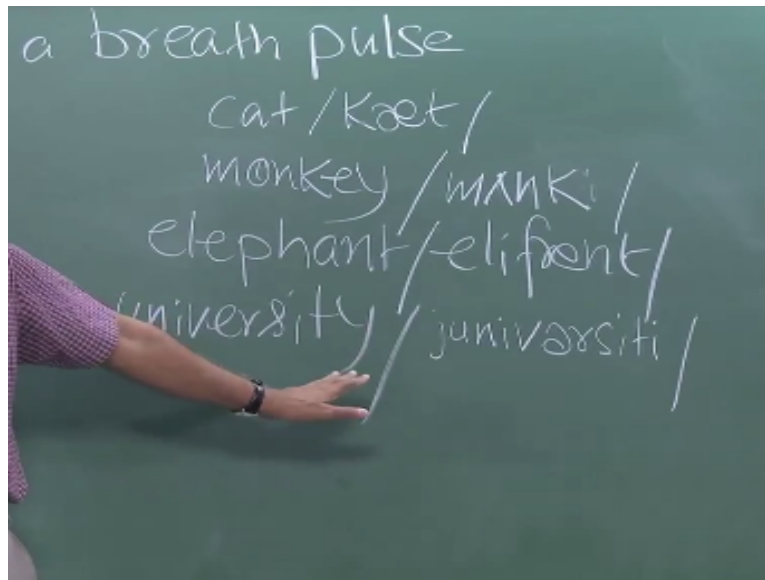 a breath pulse
cat /kæt/
monkey /mʌnki/
elephant /elifənt/
university /junivərsiti/